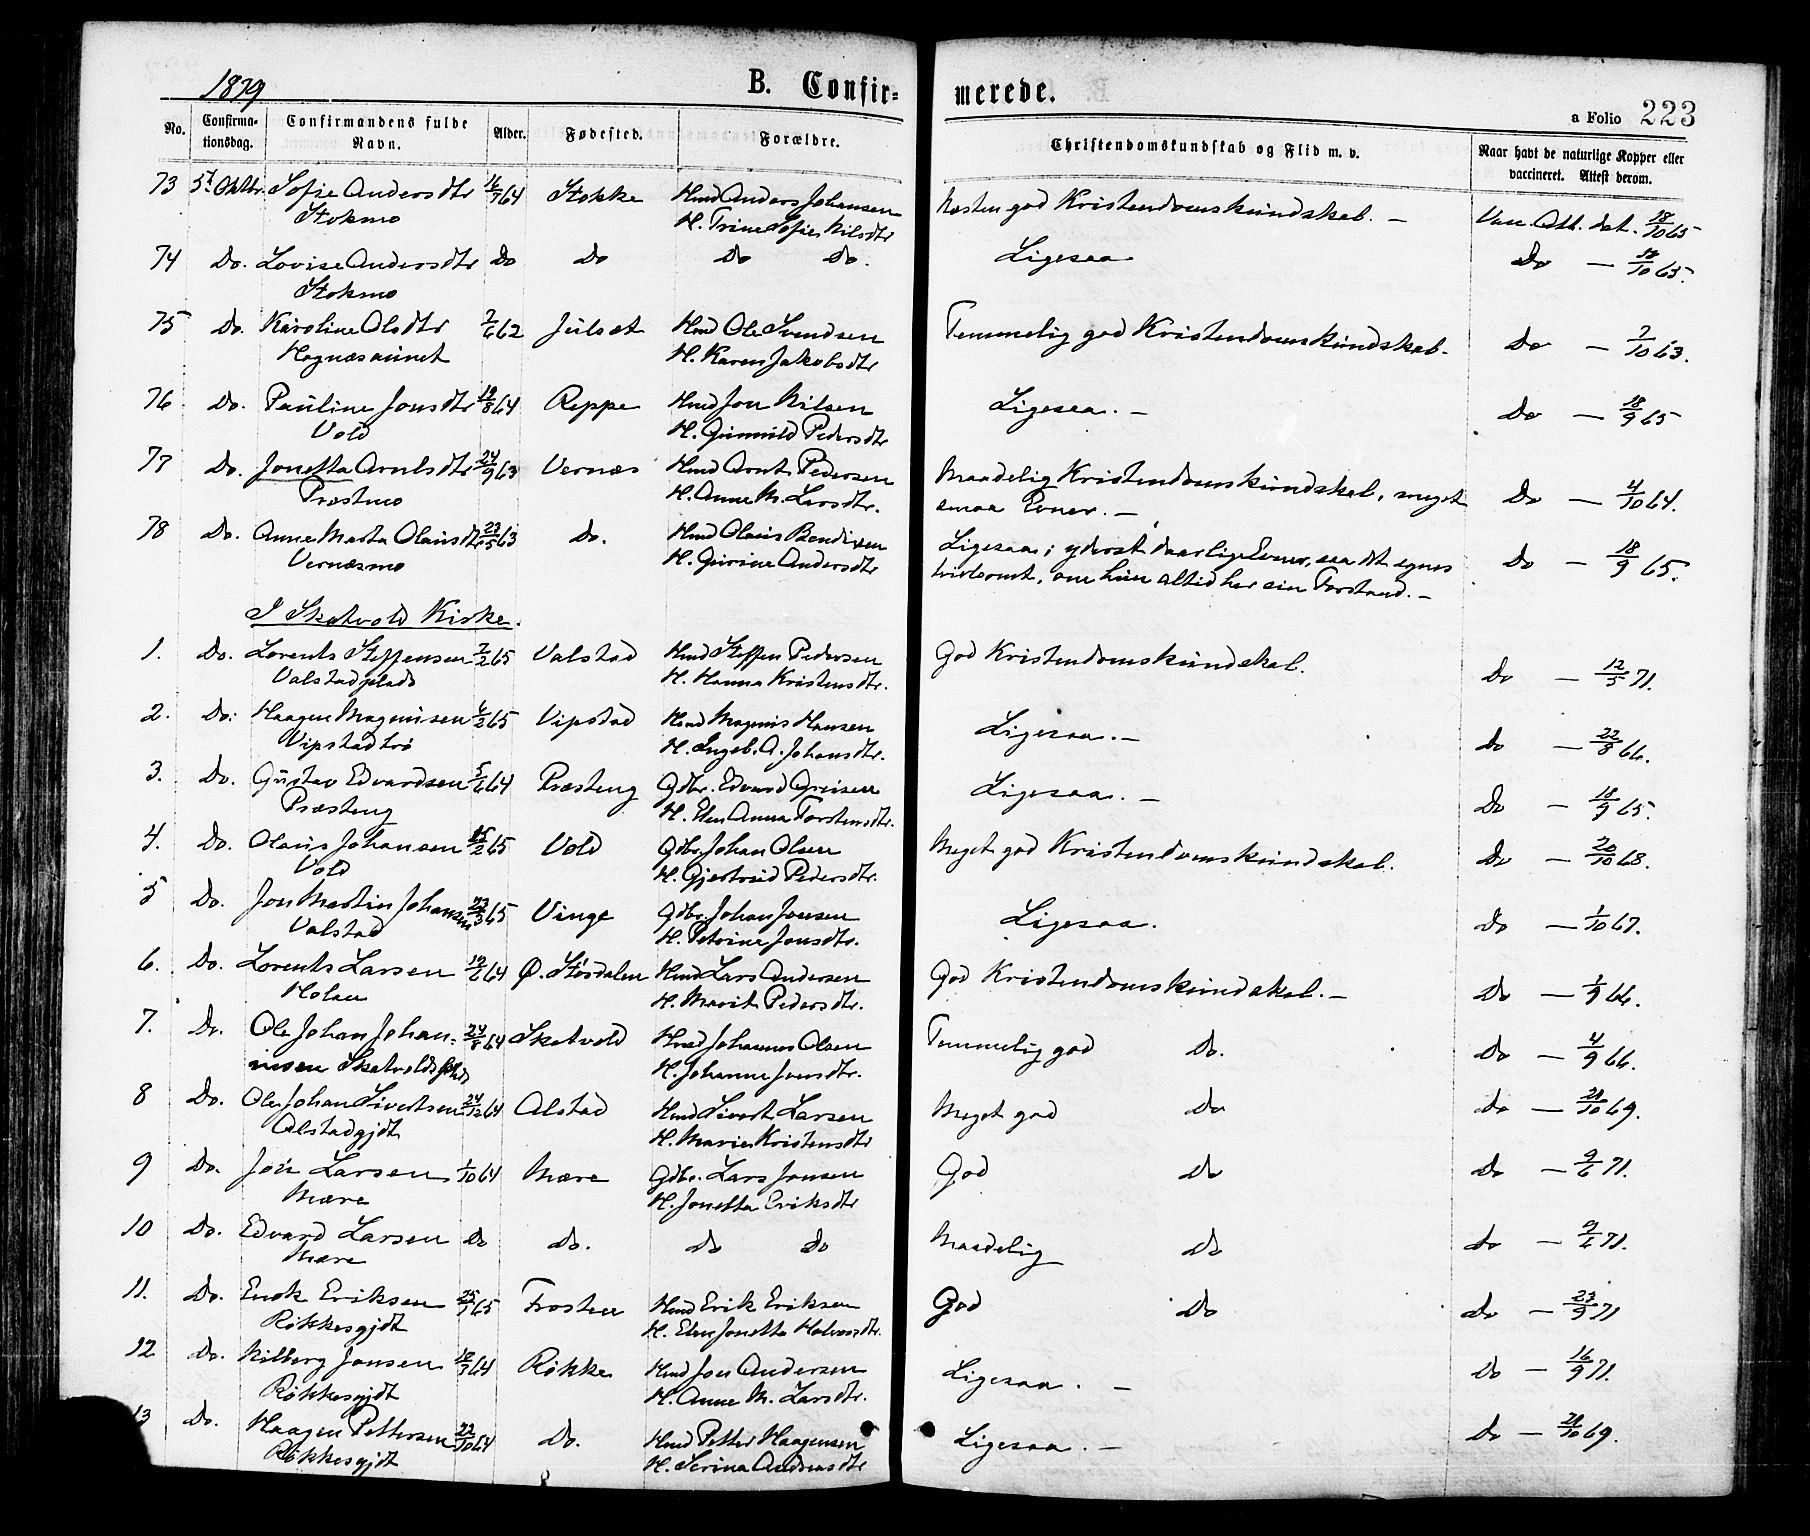 1879
B. Confir=
merede.
a Folio 223
No.
Confirma-
tionsdag.
Confirmandens fulde
Navn.
Alder.
Fødested.
Forældre.
Christendomskundskab og Flid m. v.
Naar havt de naturlige Kopper eller
vaccineret. Attest derom.
73 5t. Oktbr. Sofie Andersdtr 64 Stokke Hmd Anders Johansen Næsten god Kristendomskundskab. — Vac. Att. dat. 18/10 65
Stokmo H. Trine Sofie Nilsdtr
74 Do. Lovise Andersdtr Do Do Do Do. Ligesaa Do — 18/10 65.
Stokmo
75 Do. Karoline Olsdtr 7/6 62 Julset Hmd Ole Svendsen Temmelig god Kristendomskundskab. Do — 7/10 63.
Hognæsaunet H. Karen Jakobsdtr
76 Do. Pauline Jonsdtr 19/8 64 Reppe Hmd Jon Nilsen Ligesaa. — Do — 18/9 65
Vold H. Gunnild Pedersdtr
77 Do. Jonetta Arntsdtr 24/9 63 Vernæs Hmd Arnt Pedersen Maadelig Kristendomskundskab, meget Do — 4/10 64.
Præstmo H. Anne M. Larsdtr. smaa Evner. —
78 Do. Anne Marta Olausdtr 23/5 63 Do. Hmd Olaus Bendixen Ligesaa; yderst daarlige Evner, saa dt synes Do — 18/9 65.
Vernæsmo H. Gurine Andersdtr tvivlsomt, om hun altid har sin Forstand. —
I Skatvold Kirke.
1. Do. Lorents Steffensen 7/2 65 Valstad Hmd Steffen Pedersen God Kristendomskundskab. Do — 12/5 71.
Valstadplads H. Hanna Kristensdtr.
2. Do. Haagen Magnusen 4/2 65 Vipstad Hmd Magnus Hansen Ligesaa. — Do — 22/8 66.
Vipstadtrø H. Ingeb. A. Johansdtr.
3. Do. Gustav Edvardsen 5/6 64 Præsteng Gdbr. Edvard Greisen Ligesaa. — Do — 18/9 65.
Præsteng H. Elen Anna Torstensdtr.
4. Do. Olaus Johansen 15/2 65 Vold Gdbr. Johan Olsen Meget god Kristendomskundskab. Do — 20/10 68.
Vold H. Gjertrud Pedersdtr.
5 Do. Jon Martin Johansen 23/3 65 Vinge Gdbr. Johan Jonsen Ligesaa. Do — 1/10 67.
Valstad H. Petrine Jonsdtr.
6. Do. Lorents Larsen 19/6 64 Ø. Størdalen Hmd Lars Andersen God Kristendomskundskab. — Do — 1/9 66.
Holan H. Marit Pedersdtr.
7. Do. Ole Johan Johan= 24/8 64 Skatvold Hmd Johannes Olsen Temmelig god Do. Do — 4/9 66.
nesen Skatvoldsplads H. Johanna Jonsdtr.
8 Do. Ole Johan Sivertsen 24/12 64 Alstad Hmd Sivert Larsen Meget god Do Do — 21/10 69.
Alstadgjdt H. Marie Kristensdtr
9 Do. Jon Larsen 1/10 64 Mære Gdbr. Lars Jonsen God Do Do — 9/6 71.
Mære H. Jonetta Eriksdtr
10 Do. Edvard Larsen Do Do. Do Do Maadelig Do Do — 9/6 71.
Mære
11. Do. Enok Eriksen 25/1 65 Frosten Hmd Erik Eriksen God Do Do — 23/9 71
Røkkesgjdt H. Elen Jonetta Halvorsdtr.
12 Do. Nilberg Jonsen 64 Røkke Hmd Jon Andersen Ligesaa. — Do — 16/9 71.
Røkkesgjdt H. Anne M. Larsdtr.
13 Do. Haagen Pettersen 22/10 64 Do. Hmd Petter Haagensen Ligesaa. — Do — 21/10 69.
Røkkesgjdt H. Serina Andreasdtr